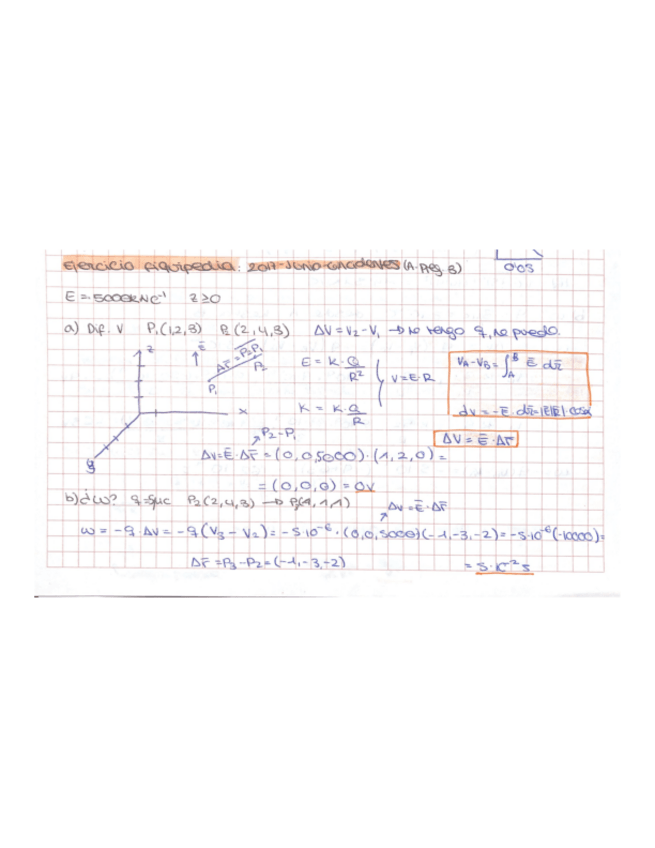 Ejercicio fiquipedia: 2017-Junio-Coincidentes (A. Preg. 3)
0'03
E = 5000k NC⁻¹ z ≥ 0
a) Dif. V P₁(1,2,3) P₂(2,4,3) ΔV = V₂ - V₁ → no tengo q, no puedo.
z Ē Δr̄ = P₂P₁ P₂ P₁ x y
E = K·Q/R² V = E·R
V = K·Q/R
V_A - V_B = ∫_A^B Ē dr̄
dV = -Ē·dr̄ = |Ē||r̄|·cosα
ΔV = Ē·Δr̄
P₂ - P₁
ΔV = Ē·Δr̄ = (0,0,5000)·(1,2,0) =
= (0,0,0) = 0V
b) ¿W? q = 5μC P₂(2,4,3) → P₃(1,1,1) ΔV = Ē·Δr̄
W = -q·ΔV = -q(V₃ - V₂) = -5·10⁻⁶·(0,0,5000)(-1,-3,-2) = -5·10⁻⁶(-10000) =
Δr̄ = P₃ - P₂ = (-1,-3,-2) = 5·10⁻² J